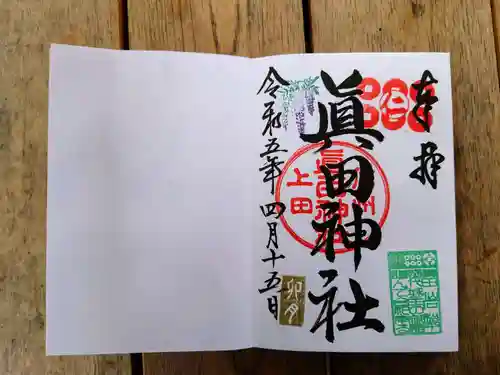 奉拝
眞田神社
信州
上田
眞田神社
令和五年四月十五日
卯月